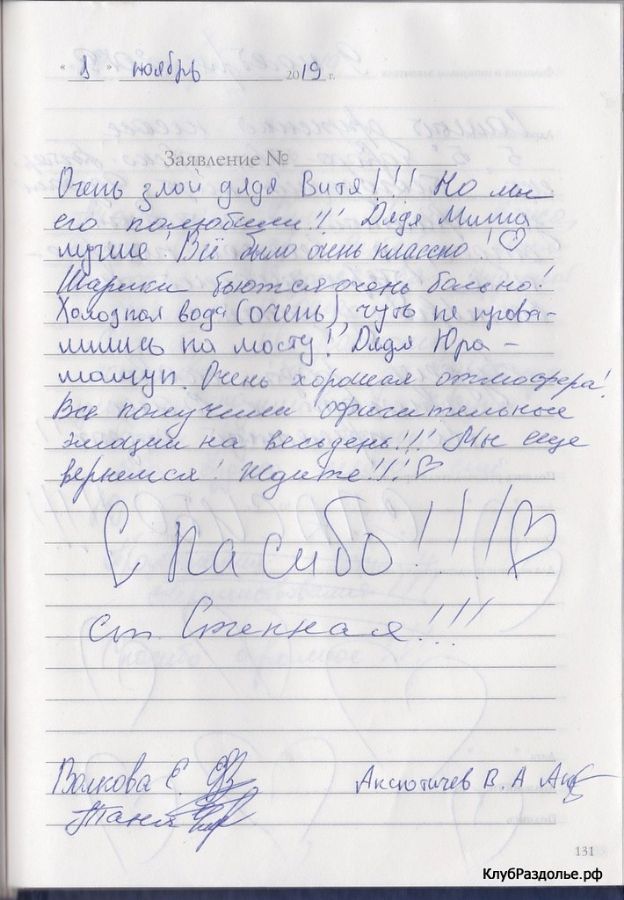 « 1 » ноябрь 2019 г.
Заявление №
Очень злой дядя Витя!!! Но мы
его полюбили!!! Дядя Миша
лучше. Всё было очень классно! ♡
Шарики бьются очень больно!
Холодная вода (очень), чуть не прова-
лились на мосту! Дядя Юра -
молчун. Очень хорошая атмосфера!
Все получили офигительные
эмоции на весь день!!! Мы еще
вернемся! Ждите!!! ♡
Спасибо!!! ♡
ст. Степная!!!
Волкова Е.
Аксютичев В. А
Таня
131
КлубРаздолье.рф